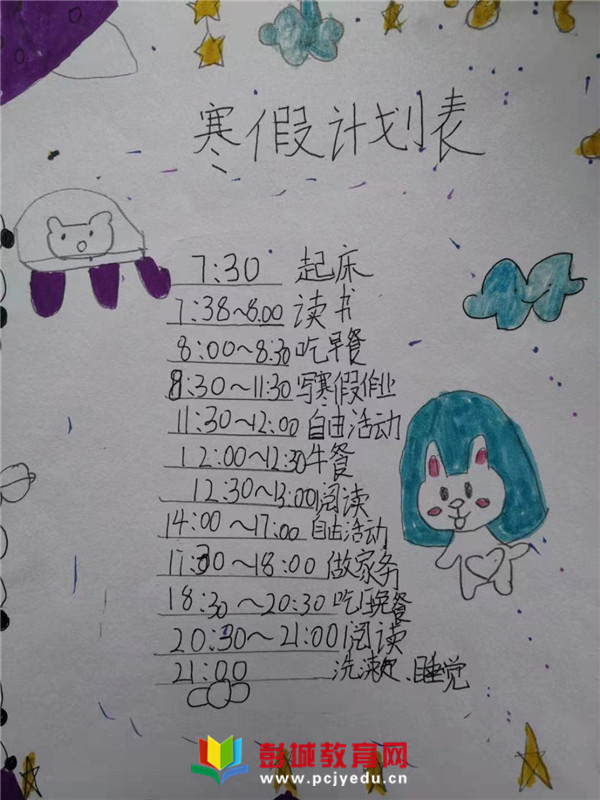 寒假计划表
7:30 起床
7:38~8:00 读书
8:00~8:30 吃早餐
8:30~11:30 写寒假作业
11:30~12:00 自由活动
12:00~12:30 牛餐
12:30~13:00 阅读
14:00~17:00 自由活动
17:30~18:00 做家务
18:30~20:30 吃晚餐
20:30~21:00 阅读
21:00 洗漱、睡觉
彭城教育网
www.pcjyedu.cn